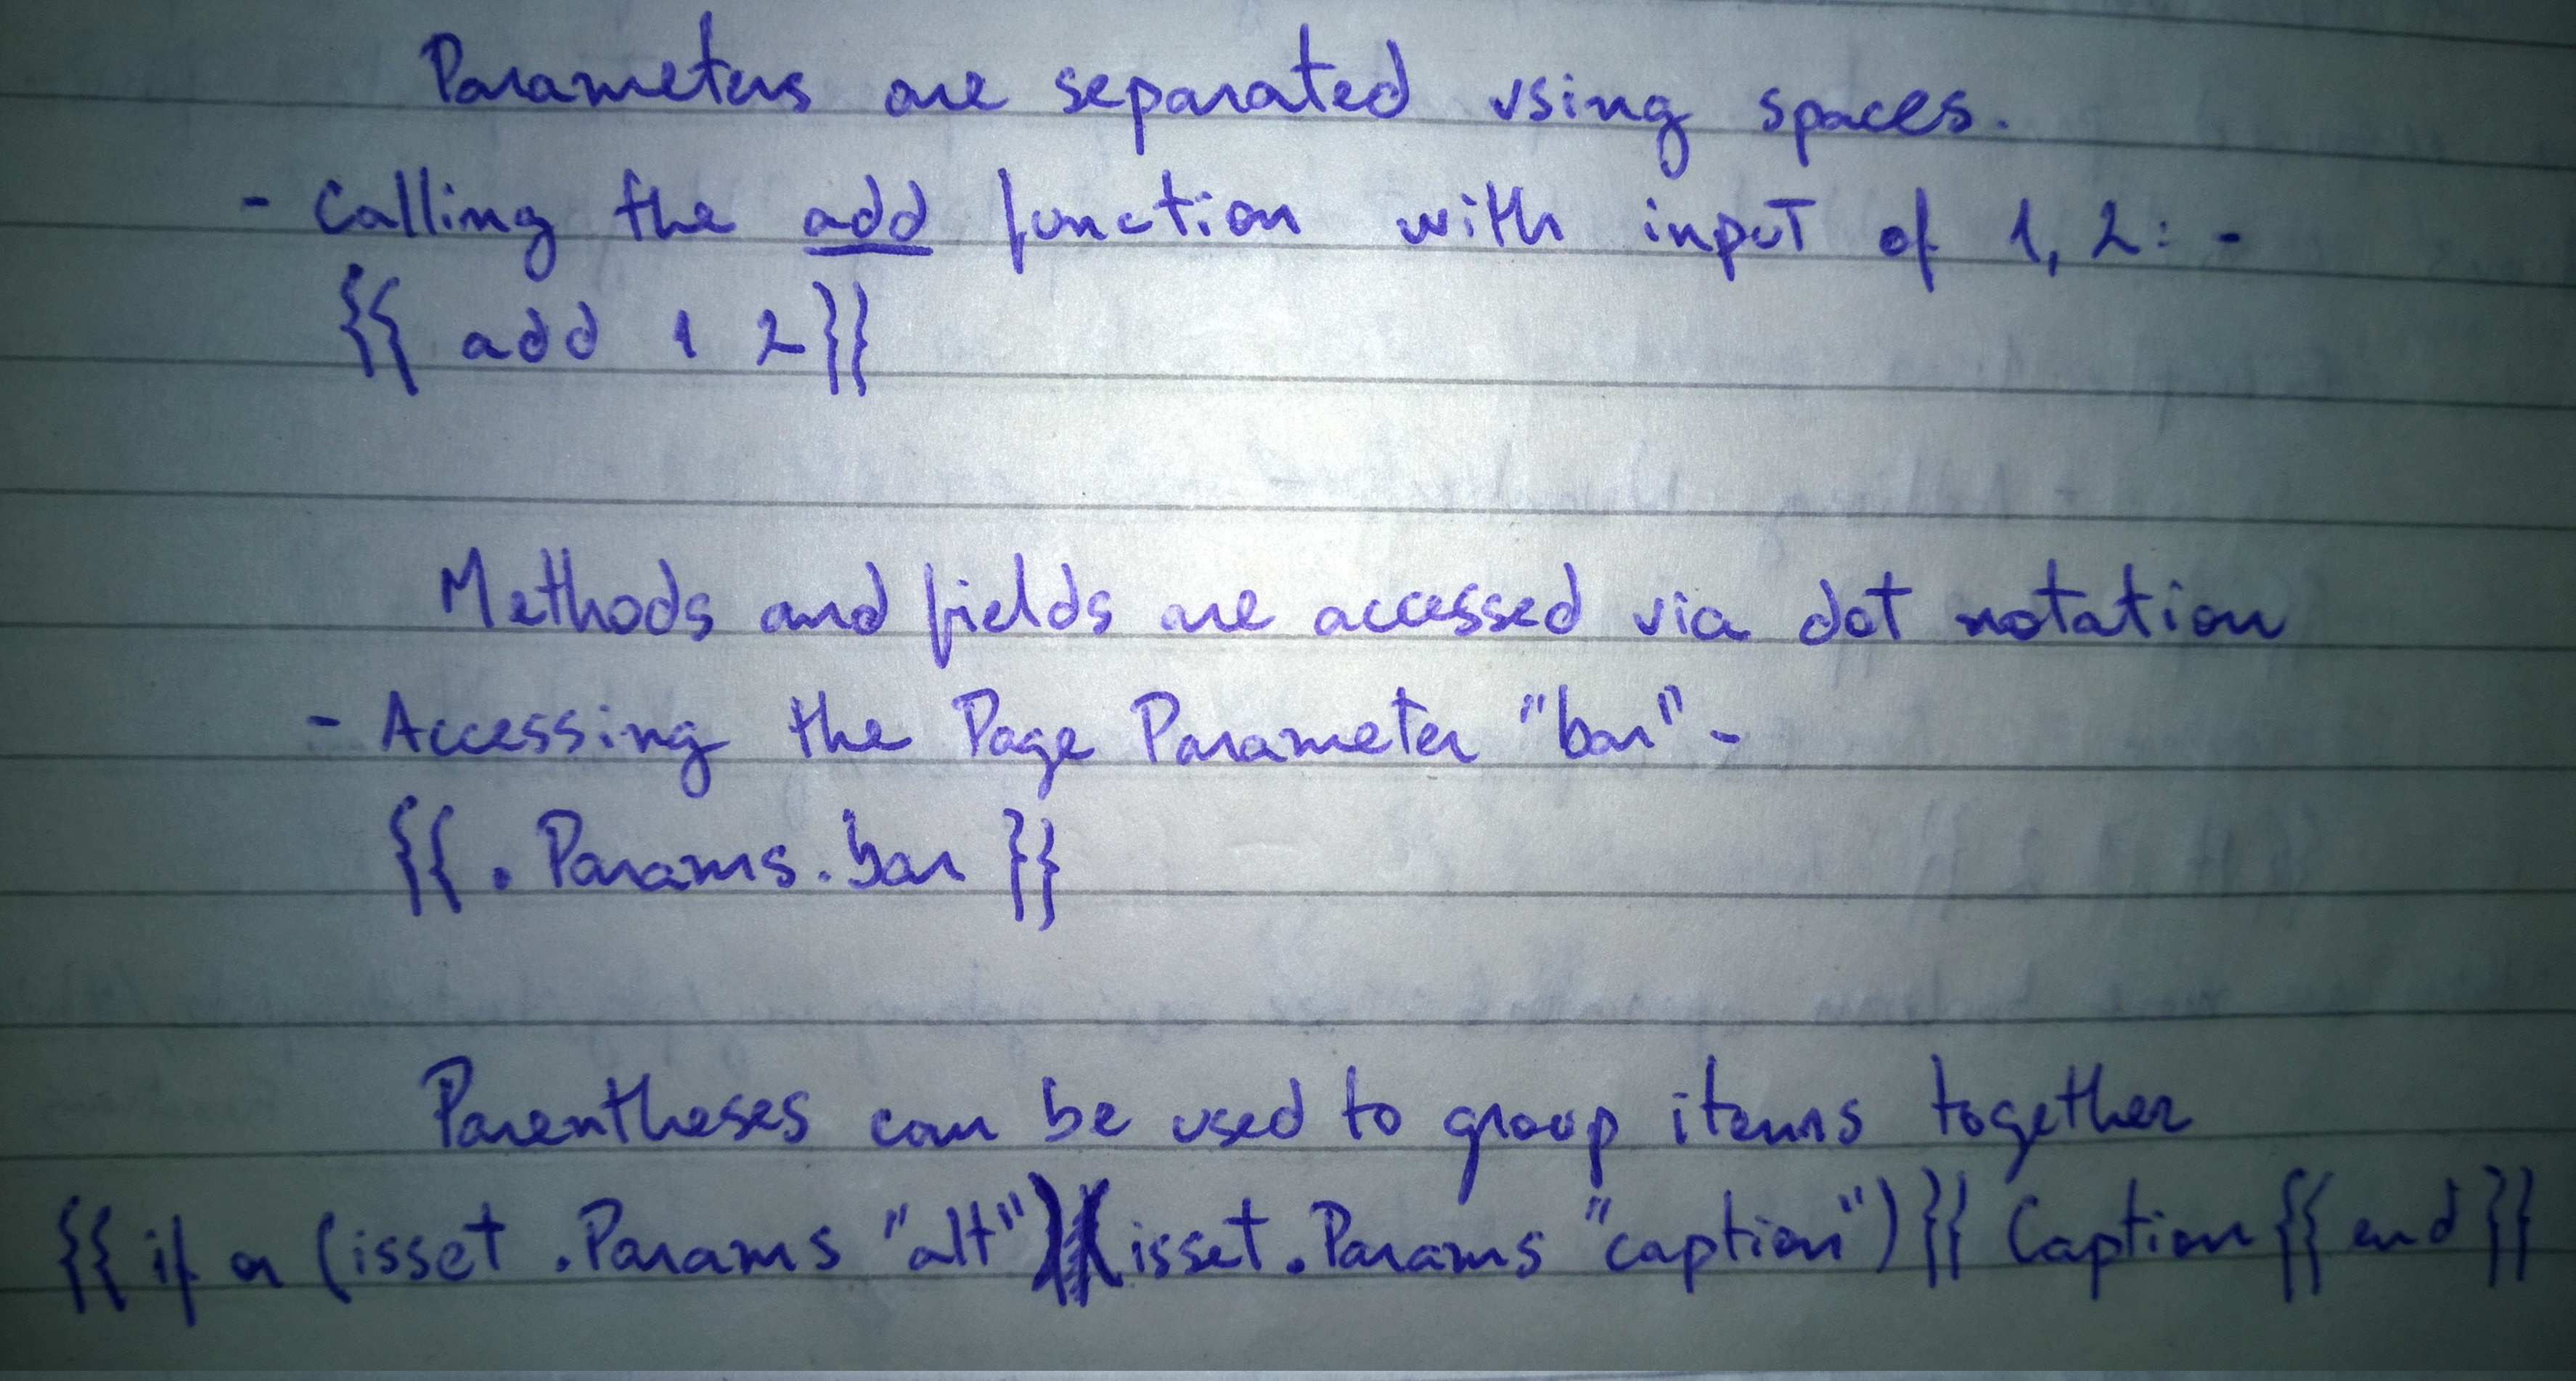 Parameters are separated using spaces.
- calling the add function with input of 1, 2: -
{{ add 1 2 }}
Methods and fields are acessed via dot notation
- Accessing the Page Parameter "bar" -
{{ . Params.bar }}
Parentheses can be used to group items together
{{ if or (isset .Params "alt") (isset .Params "caption") }} Caption {{ end }}